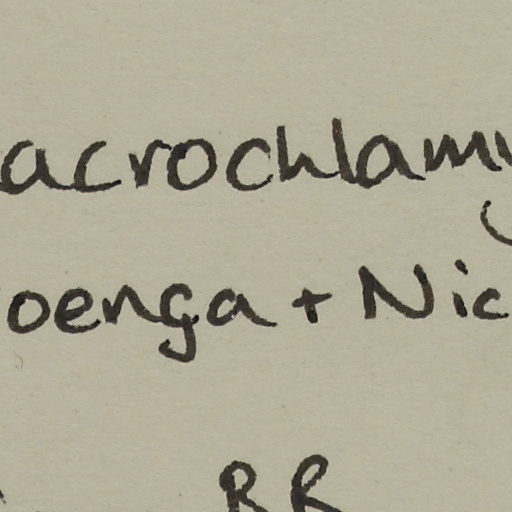 acrochlamy
oenga + Nic
RR